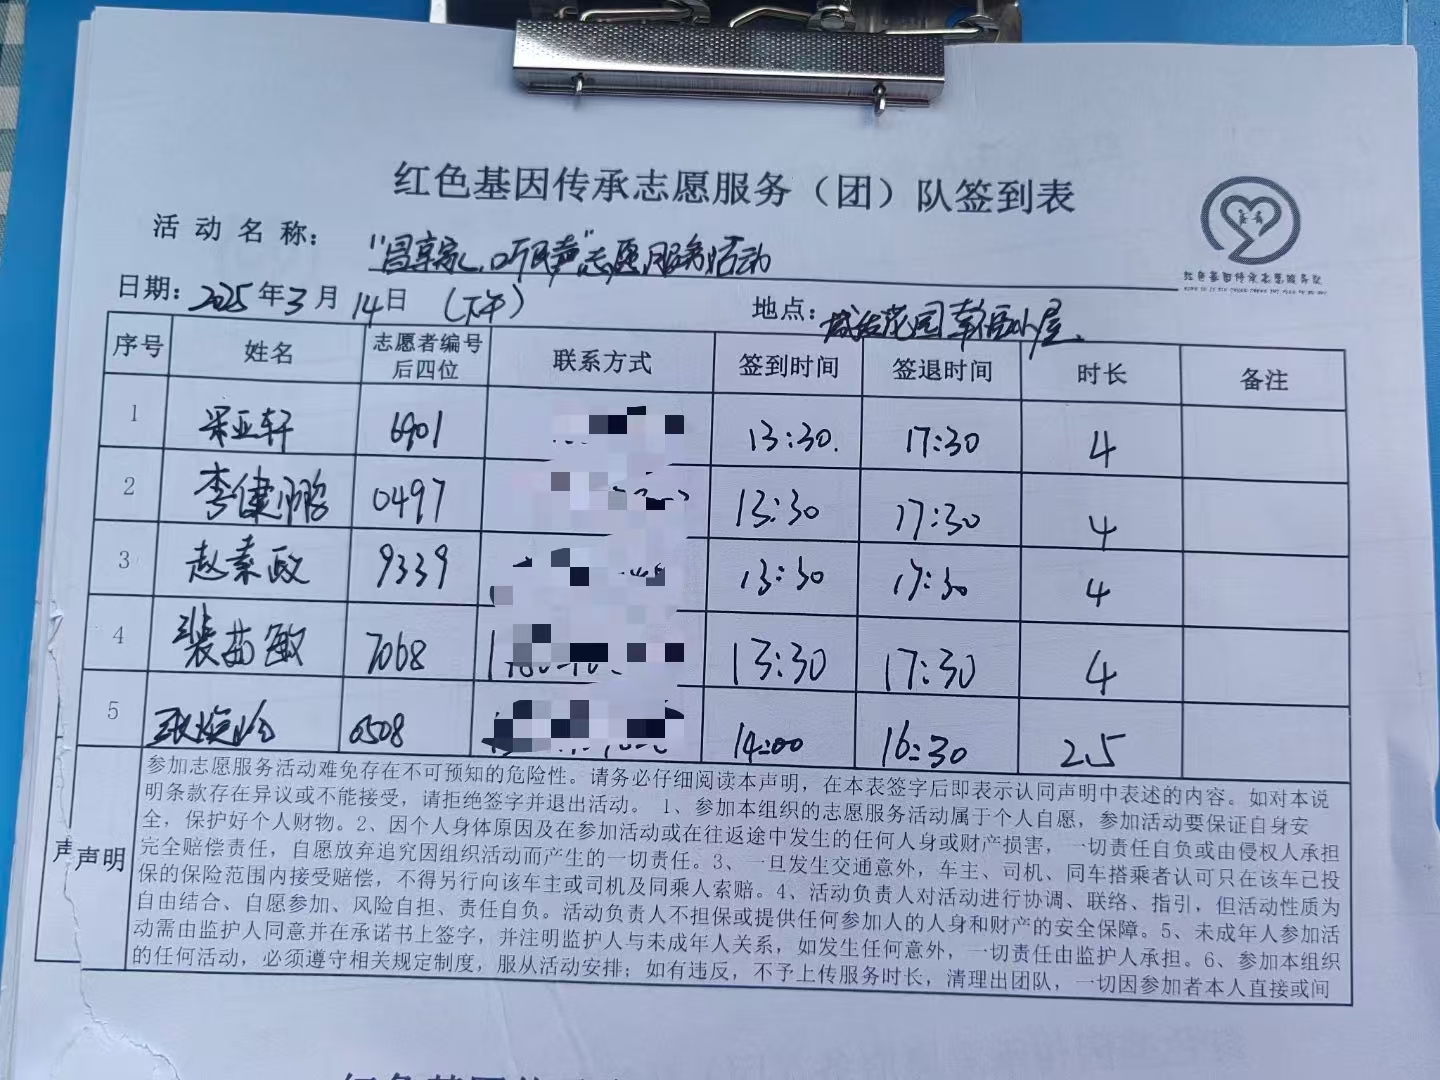 红色基因传承志愿服务（团）队签到表
红色基因传承志愿服务队
活动名称： 志愿服务活动
日期：2025年3月14日（下午） 地点：花园幸福小屋
序号 姓名 志愿者编号后四位 联系方式 签到时间 签退时间 时长 备注
1 梁亚轩 6901 13:30. 17:30 4
2 李健鹏 0497 13:30 17:30 4
3 赵素政 9339 13:30 17:30 4
4 裴苗敏 7068 13:30 17:30 4
5 6508 14:00 16:30 2.5
声明
参加志愿服务活动难免存在不可预知的危险性。请务必仔细阅读本声明，在本表签字后即表示认同声明中表述的内容。如对本说
明条款存在异议或不能接受，请拒绝签字并退出活动。 1、参加本组织的志愿服务活动属于个人自愿，参加活动要保证自身安
全，保护好个人财物。2、因个人身体原因及在参加活动或在往返途中发生的任何人身或财产损害，一切责任自负或由侵权人承担
完全赔偿责任，自愿放弃追究因组织活动而产生的一切责任。3、一旦发生交通意外，车主、司机、同车搭乘者认可只在该车已投
保的保险范围内接受赔偿，不得另行向该车主或司机及同乘人索赔。4、活动负责人对活动进行协调、联络、指引，但活动性质为
自由结合、自愿参加、风险自担、责任自负。活动负责人不担保或提供任何参加人的人身和财产的安全保障。5、未成年人参加活
动需由监护人同意并在承诺书上签字，并注明监护人与未成年人关系，如发生任何意外，一切责任由监护人承担。6、参加本组织
的任何活动，必须遵守相关规定制度，服从活动安排；如有违反，不予上传服务时长，清理出团队，一切因参加者本人直接或间